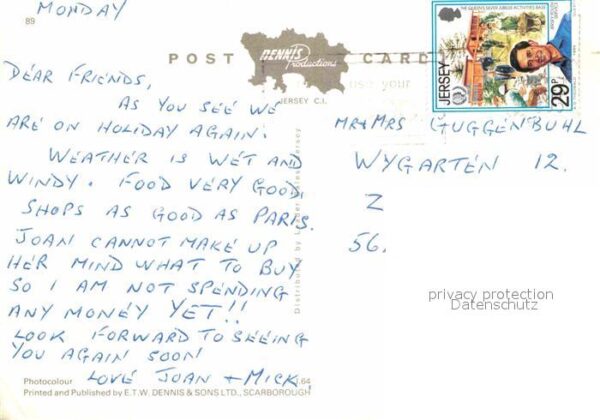 MONDAY
89
POST CARD
DENNIS
Productions
JERSEY C.I.
DEAR FRIENDS,
AS YOU SEE WE
ARE ON HOLIDAY AGAIN.
WEATHER IS WET AND
WINDY. FOOD VERY GOOD,
SHOPS AS GOOD AS PARIS.
JOAN CANNOT MAKE UP
HER MIND WHAT TO BUY
SO I AM NOT SPENDING
ANY MONEY YET!!
LOOK FORWARD TO SEEING
YOU AGAIN SOON
LOVE JOAN + MICK.
Photocolour
J.64
Printed and Published by E.T.W. DENNIS & SONS LTD., SCARBOROUGH
Distributed by
Jersey
THE QUEEN'S SILVER JUBILEE ACTIVITIES BASE
JERSEY
29P
use your
MR+MRS GUGGENBUHL
WYGARTEN 12.
Z
56.
privacy protection
Datenschutz